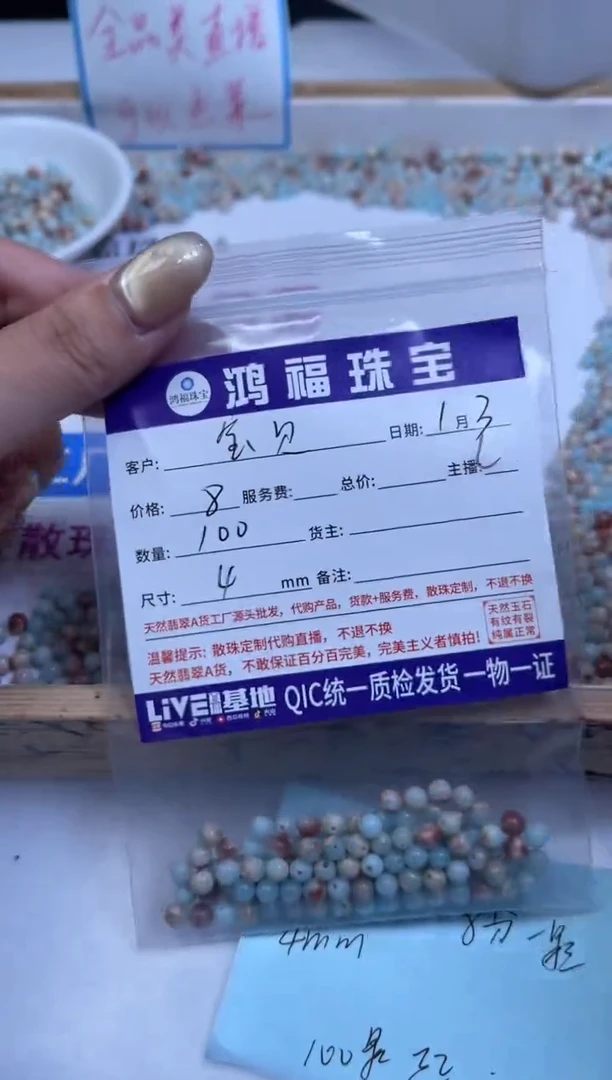 全品类直播
鸿福珠宝
鸿福珠宝
客户: 宝贝 日期: 1月3
价格: 8 服务费: 总价: 主播:
数量: 100 货主:
尺寸: 4 mm 备注:
天然翡翠A货工厂源头批发，代购产品，货款+服务费，散珠定制，不退不换
温馨提示: 散珠定制代购直播，不退不换
天然翡翠A货，不敢保证百分百完美，完美主义者慎拍!
天然玉石
有纹有裂
纯属正常
LiVE直播基地 QIC统一质检发货一物一证
散珠
4mm 8分一颗
100颗